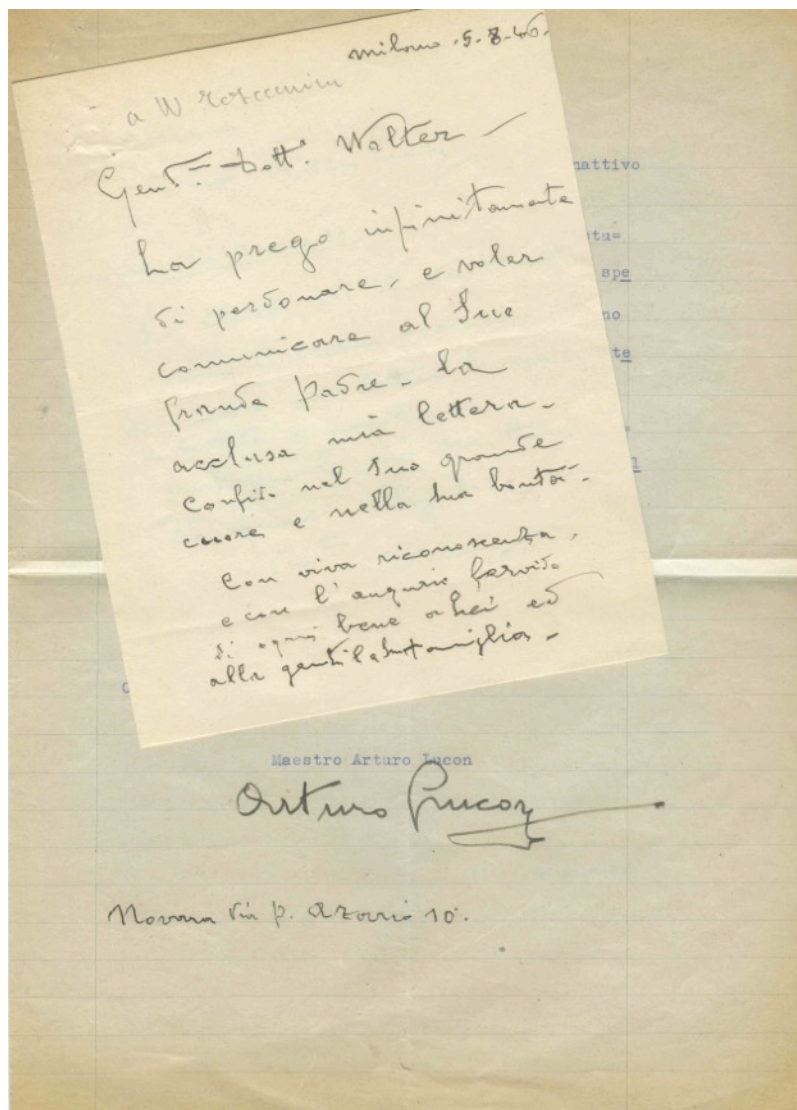 milano .5.8.46.
a W Toscanini
Gent.= Dott. Walter -
La prego infinitamente
di perdonare, e voler
comunicare al Suo
grande Padre - la
acclusa mia lettera -
Confido nel Suo grande
cuore e nella Sua bontà -
Con viva riconoscenza,
e con l'augurio fervido
di ogni bene a Lei ed
alla gentile Sua famiglia -
mattivo
tu=
spe
no
te
Maestro Arturo Lucon
Arturo Lucon
Novara Via P. Azario 10.